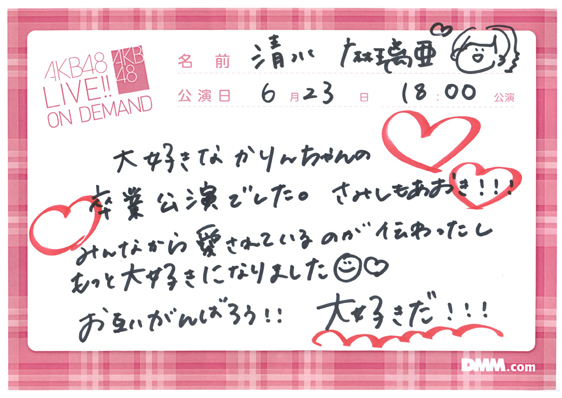 AKB48
LIVE!!
ON DEMAND
AKB
48
名前 清水 麻璃亜
公演日 6月23日 18:00公演
大好きな かりんちゃんの
卒業公演でした。 さみしもあおき!!!
みんなから愛されているのが伝わったし
もっと大好きになりました
お互いがんばろう!! 大好きだ!!!
DMM.com